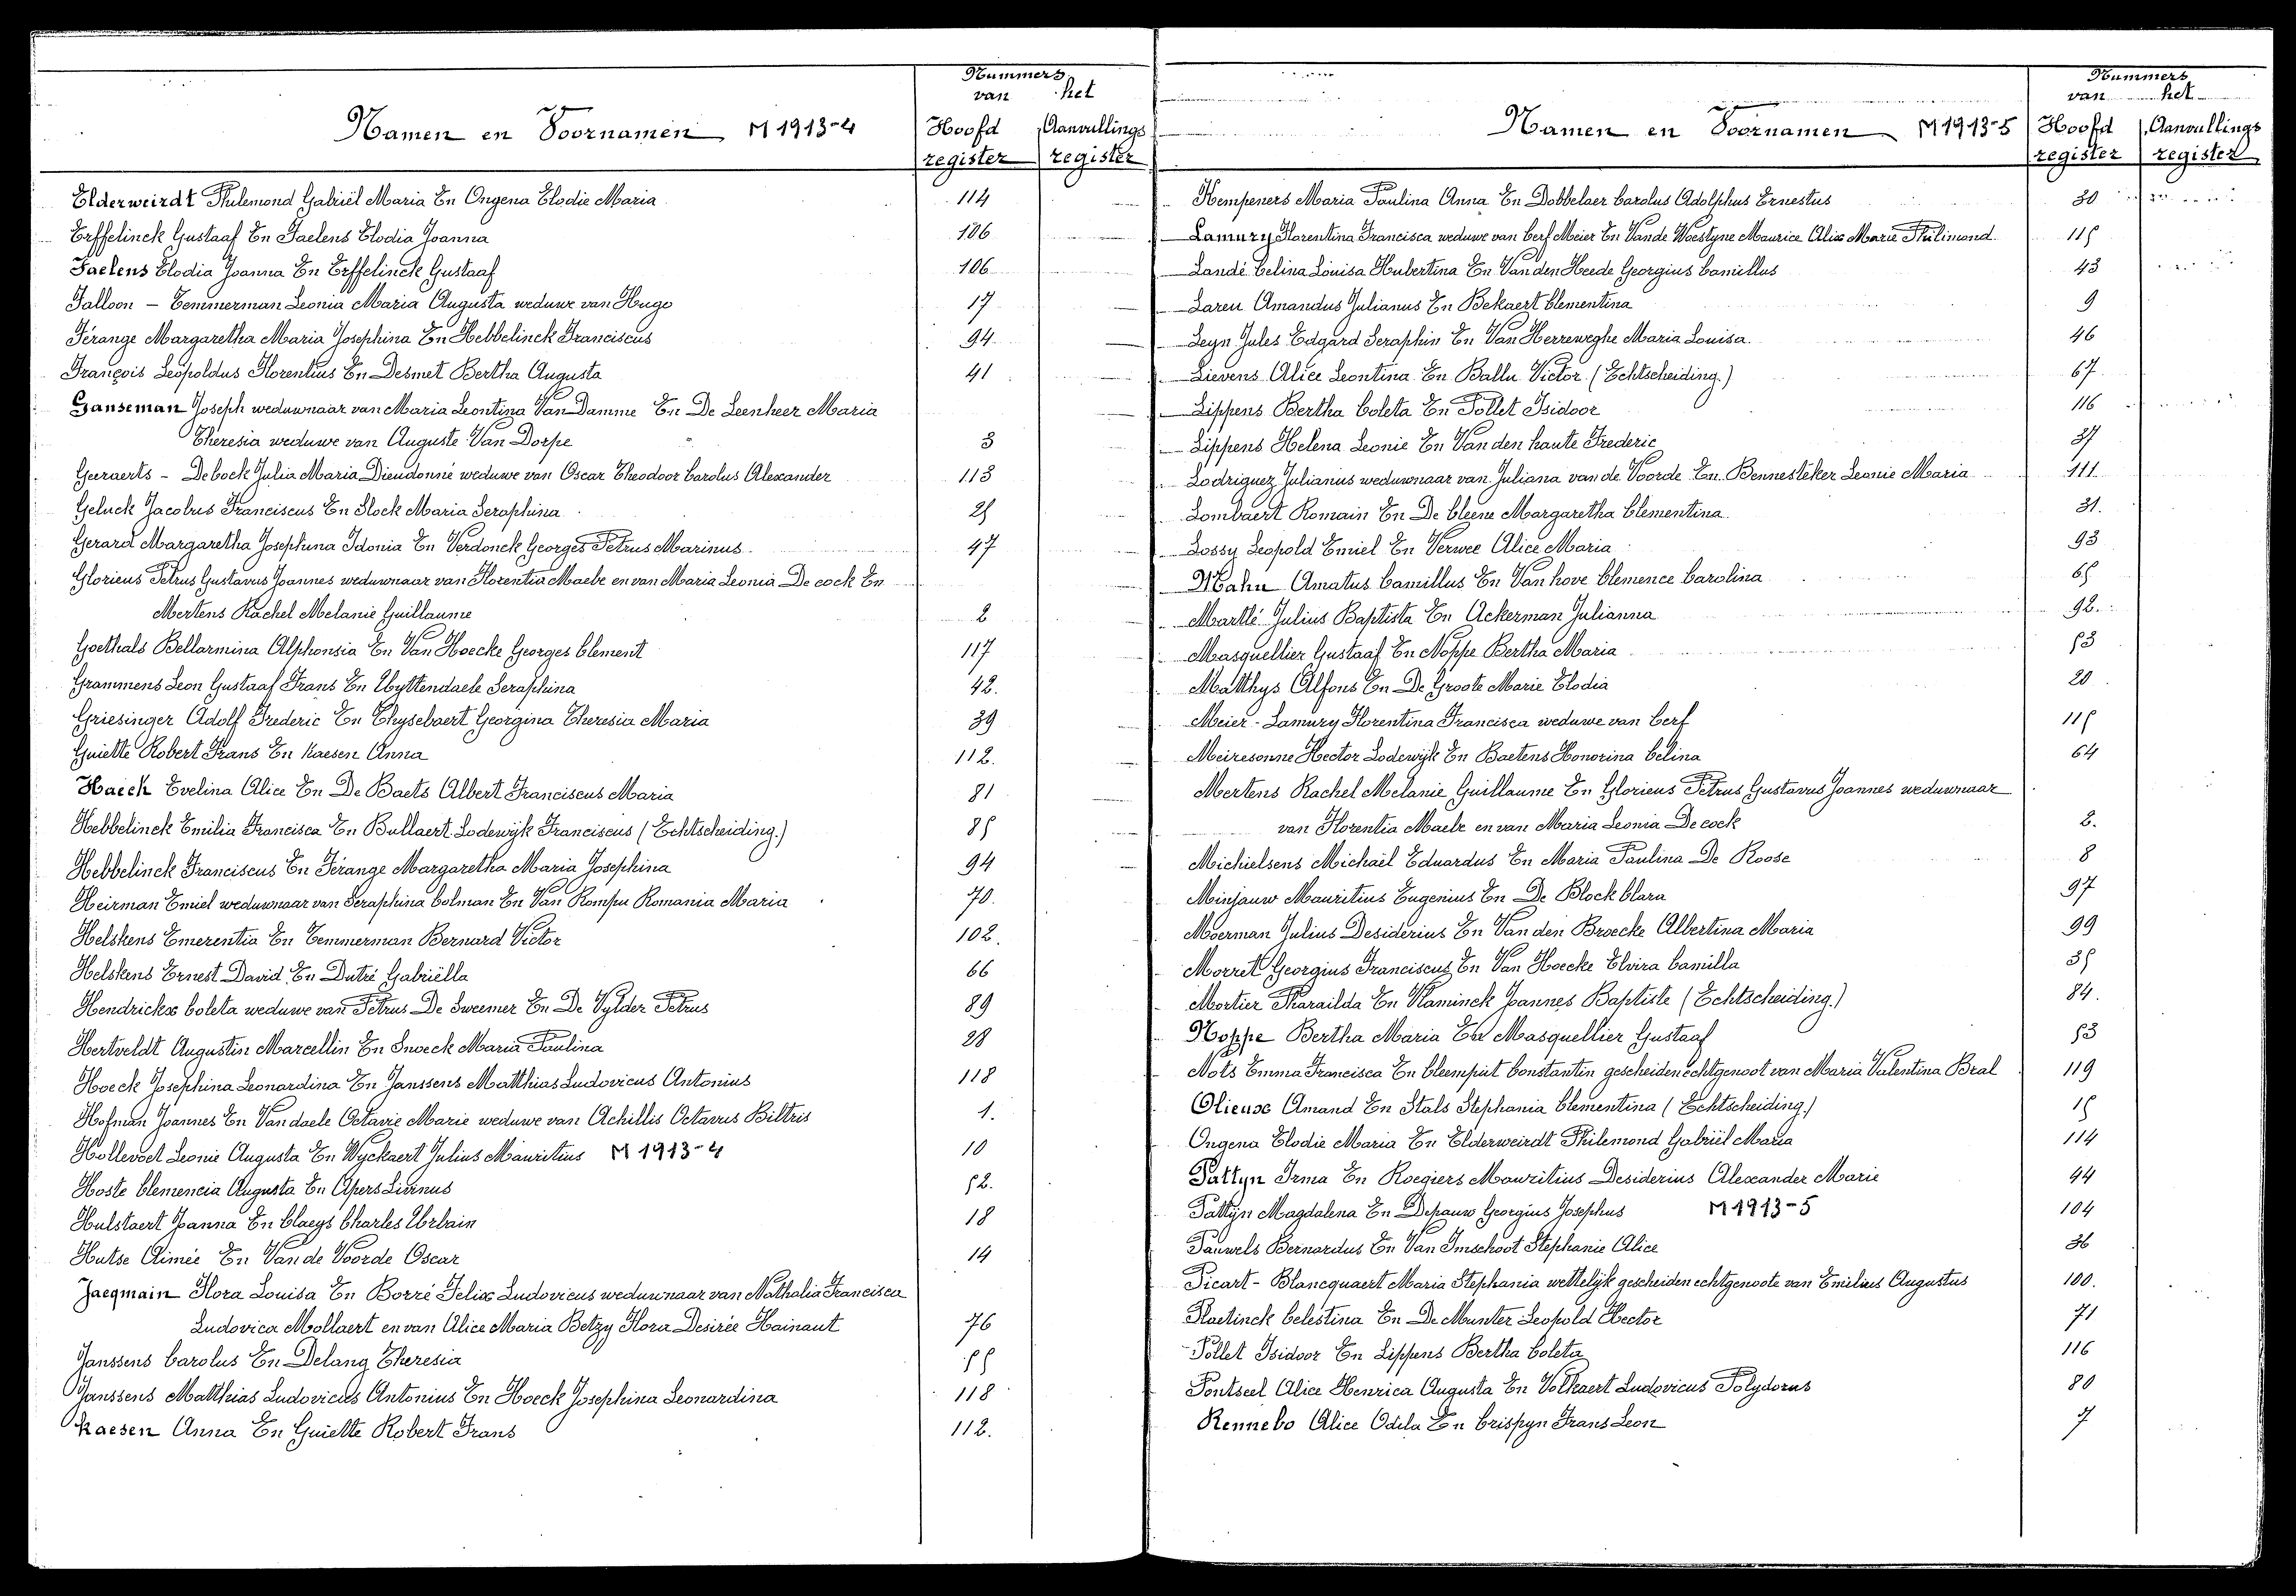 Nummers
van het
Namen en Voornamen M 1913-4 Hoofd Aanvullings
register register
Elderweirdt Philemond Gabriël Maria En Ongena Elodie Maria 114
Erffelinck Gustaaf En Faelens Elodia Joanna 106
Faelens Elodia Joanna En Erffelinck Gustaaf 106
Falloon - Temmerman Leonia Maria Augusta weduwe van Hugo 17
Férange Margaretha Maria Josephina En Hebbelinck Franciscus 94
François Leopoldus Florentius En Desmet Bertha Augusta 41
Ganseman Joseph weduwnaar van Maria Leontina Van Damme En De Leenheer Maria
Theresia weduwe van Auguste Van Dorpe 3
Geeraerts - Debock Julia Maria Dieudonné weduwe van Oscar Theodoor Carolus Alexander 113
Geluck Jacobus Franciscus En Slock Maria Seraphina 25
Gerard Margaretha Josephina Idonia En Verdonck Georges Petrus Marinus 47
Glorieus Petrus Gustavus Joannes weduwnaar van Florentia Maele en van Maria Leonia De cock En
Mertens Rachel Melanie Guillaume 2
Goethals Bellarmina Alphonsia En Van Hoecke Georges Clement 117
Grammens Leon Gustaaf Frans En Uyttendaele Seraphina 42.
Griesinger Adolf Frederic En Thysebaert Georgina Theresia Maria 39
Guiette Robert Frans En Kaesen Anna 112.
Haeck Evelina Alice En De Baets Albert Franciscus Maria 81
Hebbelinck Emilia Francisca En Bullaert Lodewijk Franciscus (Echtscheiding.) 85
Hebbelinck Franciscus En Férange Margaretha Maria Josephina 94
Heirman Emiel weduwnaar van Seraphina Colman En Van Rompu Romania Maria 70.
Helskens Emerentia En Temmerman Bernard Victor 102.
Helskens Ernest David En Dutré Gabriëlla 66
Hendrickx Coleta weduwe van Petrus De Sweemer En De Vylder Petrus 89
Hertveldt Augustin Marcellin En Snoeck Maria Paulina 28
Hoeck Josephina Leonardina En Janssens Matthias Ludovicus Antonius 118
Hofman Joannes En Vandaele Octavie Marie weduwe van Achillis Octavus Biltris 1.
Hollevoet Leonie Augusta En Wyckaert Julius Mauritius M 1913-4 10
Hoste Clemencia Augusta En Apers Livinus 52.
Hulstaert Joanna En Claeys Charles Urbain 18
Hutse Aimée En Van de Voorde Oscar 14
Jacqmain Flora Louisa En Borré Felix Ludovicus weduwnaar van Nathalia Francisca
Ludovica Mollaert en van Alice Maria Betzy Flora Desirée Hainaut 76
Janssens Carolus En Delang Theresia 55
Janssens Matthias Ludovicus Antonius En Hoeck Josephina Leonardina 118
Kaesen Anna En Guiette Robert Frans 112.
Nummers
van het
Namen en Voornamen M 1913-5 Hoofd Aanvullings
register register
Kempeners Maria Paulina Anna En Dobbelaer Carolus Adolphus Ernestus 30
Lamury Florentina Francisca weduwe van Cerf Meier En Vande Woestyne Maurice Alix Marie Philimond 115
Landé Celina Louisa Hubertina En Van den Heede Georgius Camillus 43
Lareu Amandus Julianus En Bekaert Clementina 9
Leyn Jules Edgard Seraphin En Van Herreweghe Maria Louisa. 46
Lievens Alice Leontina En Ballu Victor (Echtscheiding.) 67
Lippens Bertha Coleta En Pollet Isidoor 116
Lippens Helena Leonie En Van den haute Frederic 37
Lodriguez Julianus weduwnaar van Juliana van de Voorde En Bennesteker Leonie Maria 111
Lombaert Romain En De Cleene Margaretha Clementina 31.
Lossy Leopold Emiel En Verwee Alice Maria 93
Mahu Amatus Camillus En Van hove Clemence Carolina 65
Martté Julius Baptista En Ackerman Julianna 92.
Masquellier Gustaaf En Noppe Bertha Maria 53
Matthys Alfons En De Groote Marie Elodia 20
Meier - Lamury Florentina Francisca weduwe van Cerf 115
Meiresonne Hector Lodewijk En Baetens Honorina Celina 64
Mertens Rachel Melanie Guillaume En Glorieus Petrus Gustavus Joannes weduwnaar
van Florentia Maele en van Maria Leonia De cock 2.
Michielsens Michaël Eduardus En Maria Paulina De Roose 8
Minjauw Mauritius Eugenius En De Block Clara 97
Moerman Julius Desiderius En Van den Broecke Albertina Maria 99
Morret Georgius Franciscus En Van Hoecke Elvira Camilla 35
Mortier Pharailda En Vlaminck Joannes Baptiste (Echtscheiding.) 84.
Noppe Bertha Maria En Masquellier Gustaaf 53
Nots Emma Francisca En Cleempüt Constantin gescheiden echtgenoot van Maria Valentina Bral 119
Olieux Amand En Stals Stephania Clementina (Echtscheiding.) 15
Ongena Elodie Maria En Elderweirdt Philemond Gabriël Maria 114
Pattyn Irma En Roegiers Mauritius Desiderius Alexander Marie 44
Pattyn Magdalena En Depauw Georgius Josephus M 1913-5 104
Pauwels Bernardus En Van Imschoot Stephanie Alice 36
Picart - Blancquaert Maria Stephania wettelijk gescheiden echtgenoote van Emilius Augustus 100.
Plaetinck Celestina En De Munter Leopold Hector 71
Pollet Isidoor En Lippens Bertha Coleta 116
Pontseel Alice Henrica Augusta En Volkaert Ludovicus Polydorus 80
Rennebo Alice Odila En Crispyn Frans Leon 7